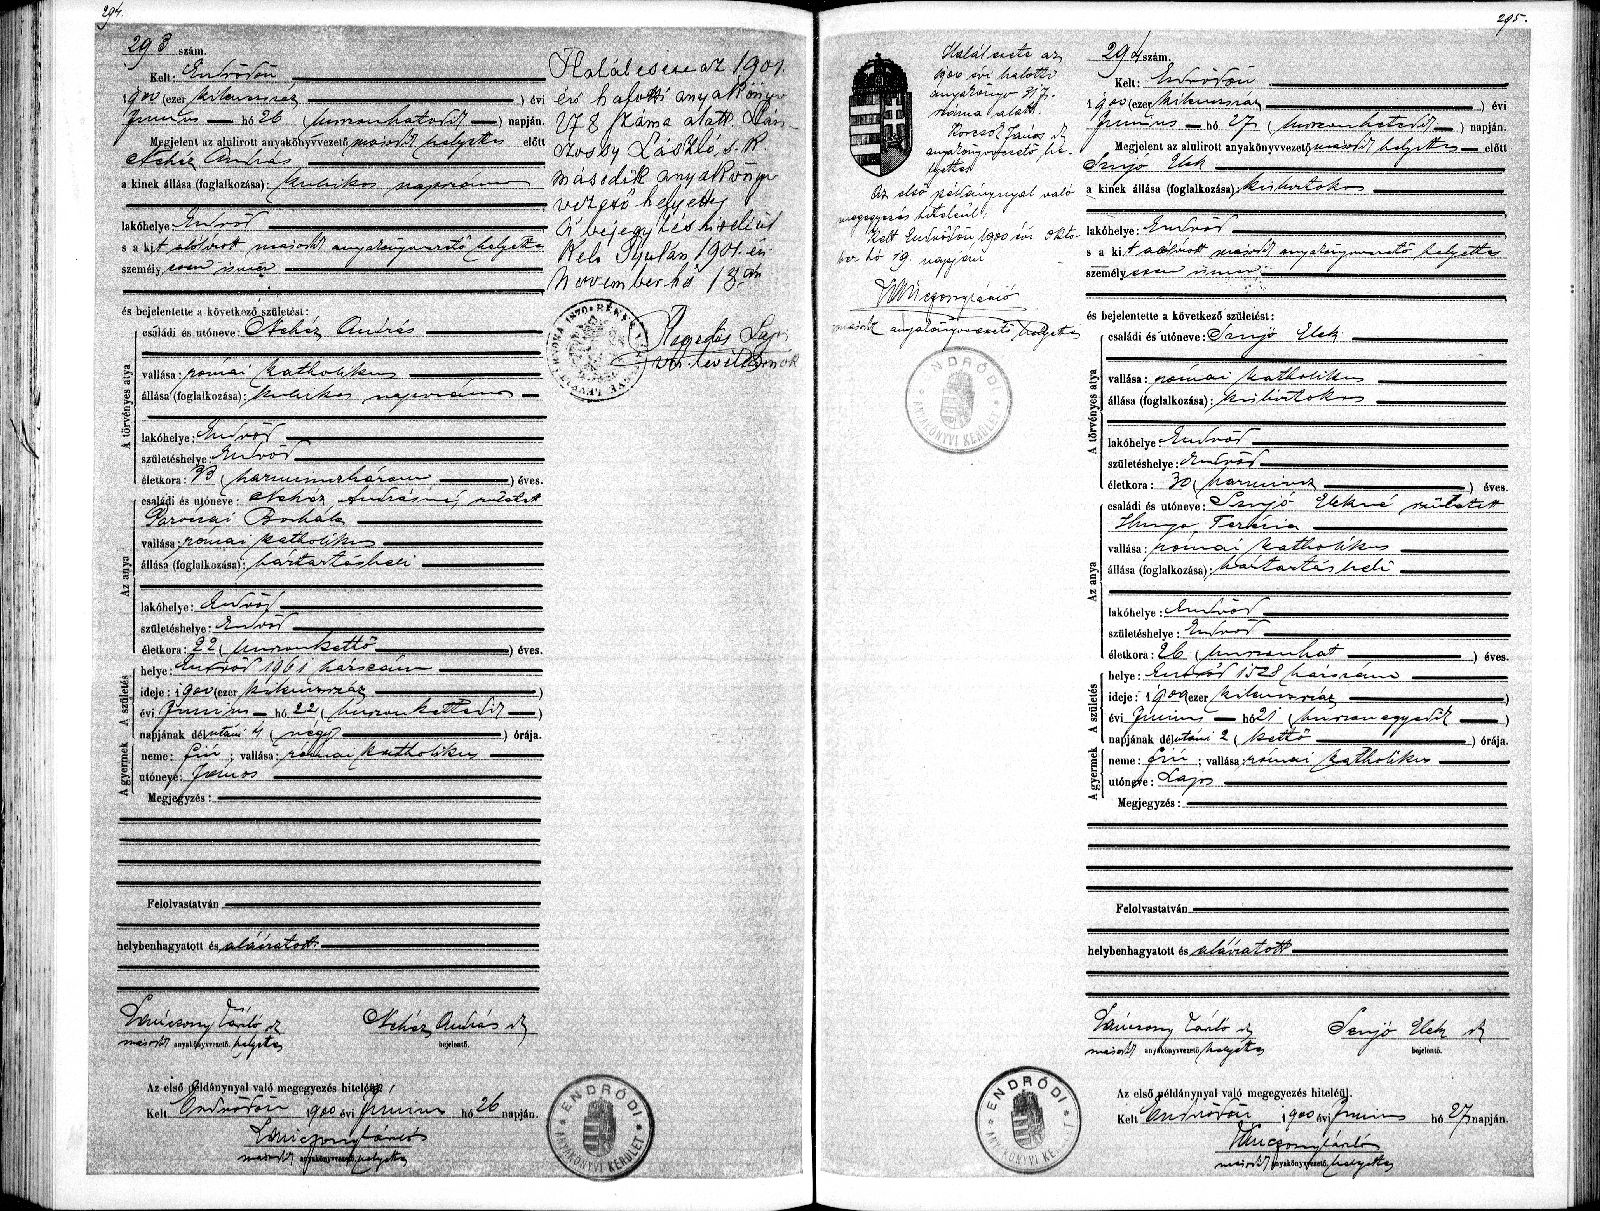 294.
293 szám.
Kelt: Endrődön
1900 (ezer kilencszáz ) évi
Junius hó 26 (huszonhatodik ) napján.
Megjelent az alulirott anyakönyvvezető másodk helyettes előtt
Nehéz András
a kinek állása (foglalkozása): kubikos napszámos
lakóhelye: Endrőd
s a kit alólirott másodk anyakönyvvezető helyettes
személyesen ismer
és bejelentette a következő születést:
A törvényes atya
családi és utóneve: Nehéz András
vallása: római katholikus
állása (foglalkozása): kubikos napszámos
lakóhelye: Endrőd
születéshelye: Endrőd
életkora: 33 (harminczhárom ) éves.
Az anya
családi és utóneve: Nehéz Andrásné, született
Borbála
vallása: római katholikus
állása (foglalkozása): háztartásbeli
lakóhelye: Endrőd
születéshelye: Endrőd
életkora: 22 (huszonkettő ) éves.
A születés
helye: Endrőd 1961 házszám
ideje: 1900 (ezer kilencszáz )
évi Junius hó 22 (huszonkettedik )
napjának délutáni 4 (négy ) órája.
A gyermek
neme: fiú; vallása: római katholikus
utóneve: János
Megjegyzés:
Felolvastatván
helybenhagyatott és aláiratott.
másodk anyakönyvvezető. helyettes
Nehéz András sk
bejelentő.
Az első példánynyal való megegyezés hiteléül.
Kelt Endrődön 1900 évi Junius hó 26 napján.
másodk anyakönyvvezető. helyettes
ENDRŐDI
ANYAKÖNYVI KERÜLET
Halálesete az 1901.
évi halotti anyakönyv
278 száma alatt.
László s. k.
második anyakönyv
vezető helyettes
A bejegyzés hiteléül
Kelt Gyulán 1901. évi
November hó 18.án
Hegedüs Lajos
vm. levéltárnok
295.
294 szám.
Kelt: Endrődön
1900 (ezer kilencszáz ) évi
Junius hó 27 (huszonhetedik ) napján.
Megjelent az alulirott anyakönyvvezető másodk helyettes előtt
Szujó Elek
a kinek állása (foglalkozása): kisbirtokos
lakóhelye: Endrőd
s a kit alólirott másodk anyakönyvvezető helyettes
személyesen ismer
és bejelentette a következő születést:
A törvényes atya
családi és utóneve: Szujó Elek
vallása: római katholikus
állása (foglalkozása): kisbirtokos
lakóhelye: Endrőd
születéshelye: Endrőd
életkora: 30 (harmincz ) éves.
Az anya
családi és utóneve: Szujó Elekné született
Hunya Terézia
vallása: római katholikus
állása (foglalkozása): háztartásbeli
lakóhelye: Endrőd
születéshelye: Endrőd
életkora: 26 (huszonhat ) éves.
A születés
helye: Endrőd 1528 házszám
ideje: 1900 (ezer kilencszáz )
évi Junius hó 21 (huszonegyedik )
napjának délutáni 2 (kettő ) órája.
A gyermek
neme: fiú; vallása: római katholikus
utóneve: Lajos
Megjegyzés:
Felolvastatván
helybenhagyatott és aláiratott
másodk anyakönyvvezető. helyettes
Szujó Elek sk
bejelentő.
Az első példánynyal való megegyezés hiteléül.
Kelt Endrődön 1900 évi Junius hó 27 napján.
másodk anyakönyvvezető. helyettes
ENDRŐDI
ANYAKÖNYVI KERÜLET
Halálesete az
1900 évi halotti
anyakönyv
száma alatt.
János sk
anyakönyvvezető he-
lyettes
Az első példánynyal való
megegyezés hiteléül.
Kelt Endrődön, 1900 évi Októ-
ber hó 19. napján
másodk anyakönyvvezető helyettes
ENDRŐDI
ANYAKÖNYVI KERÜLET